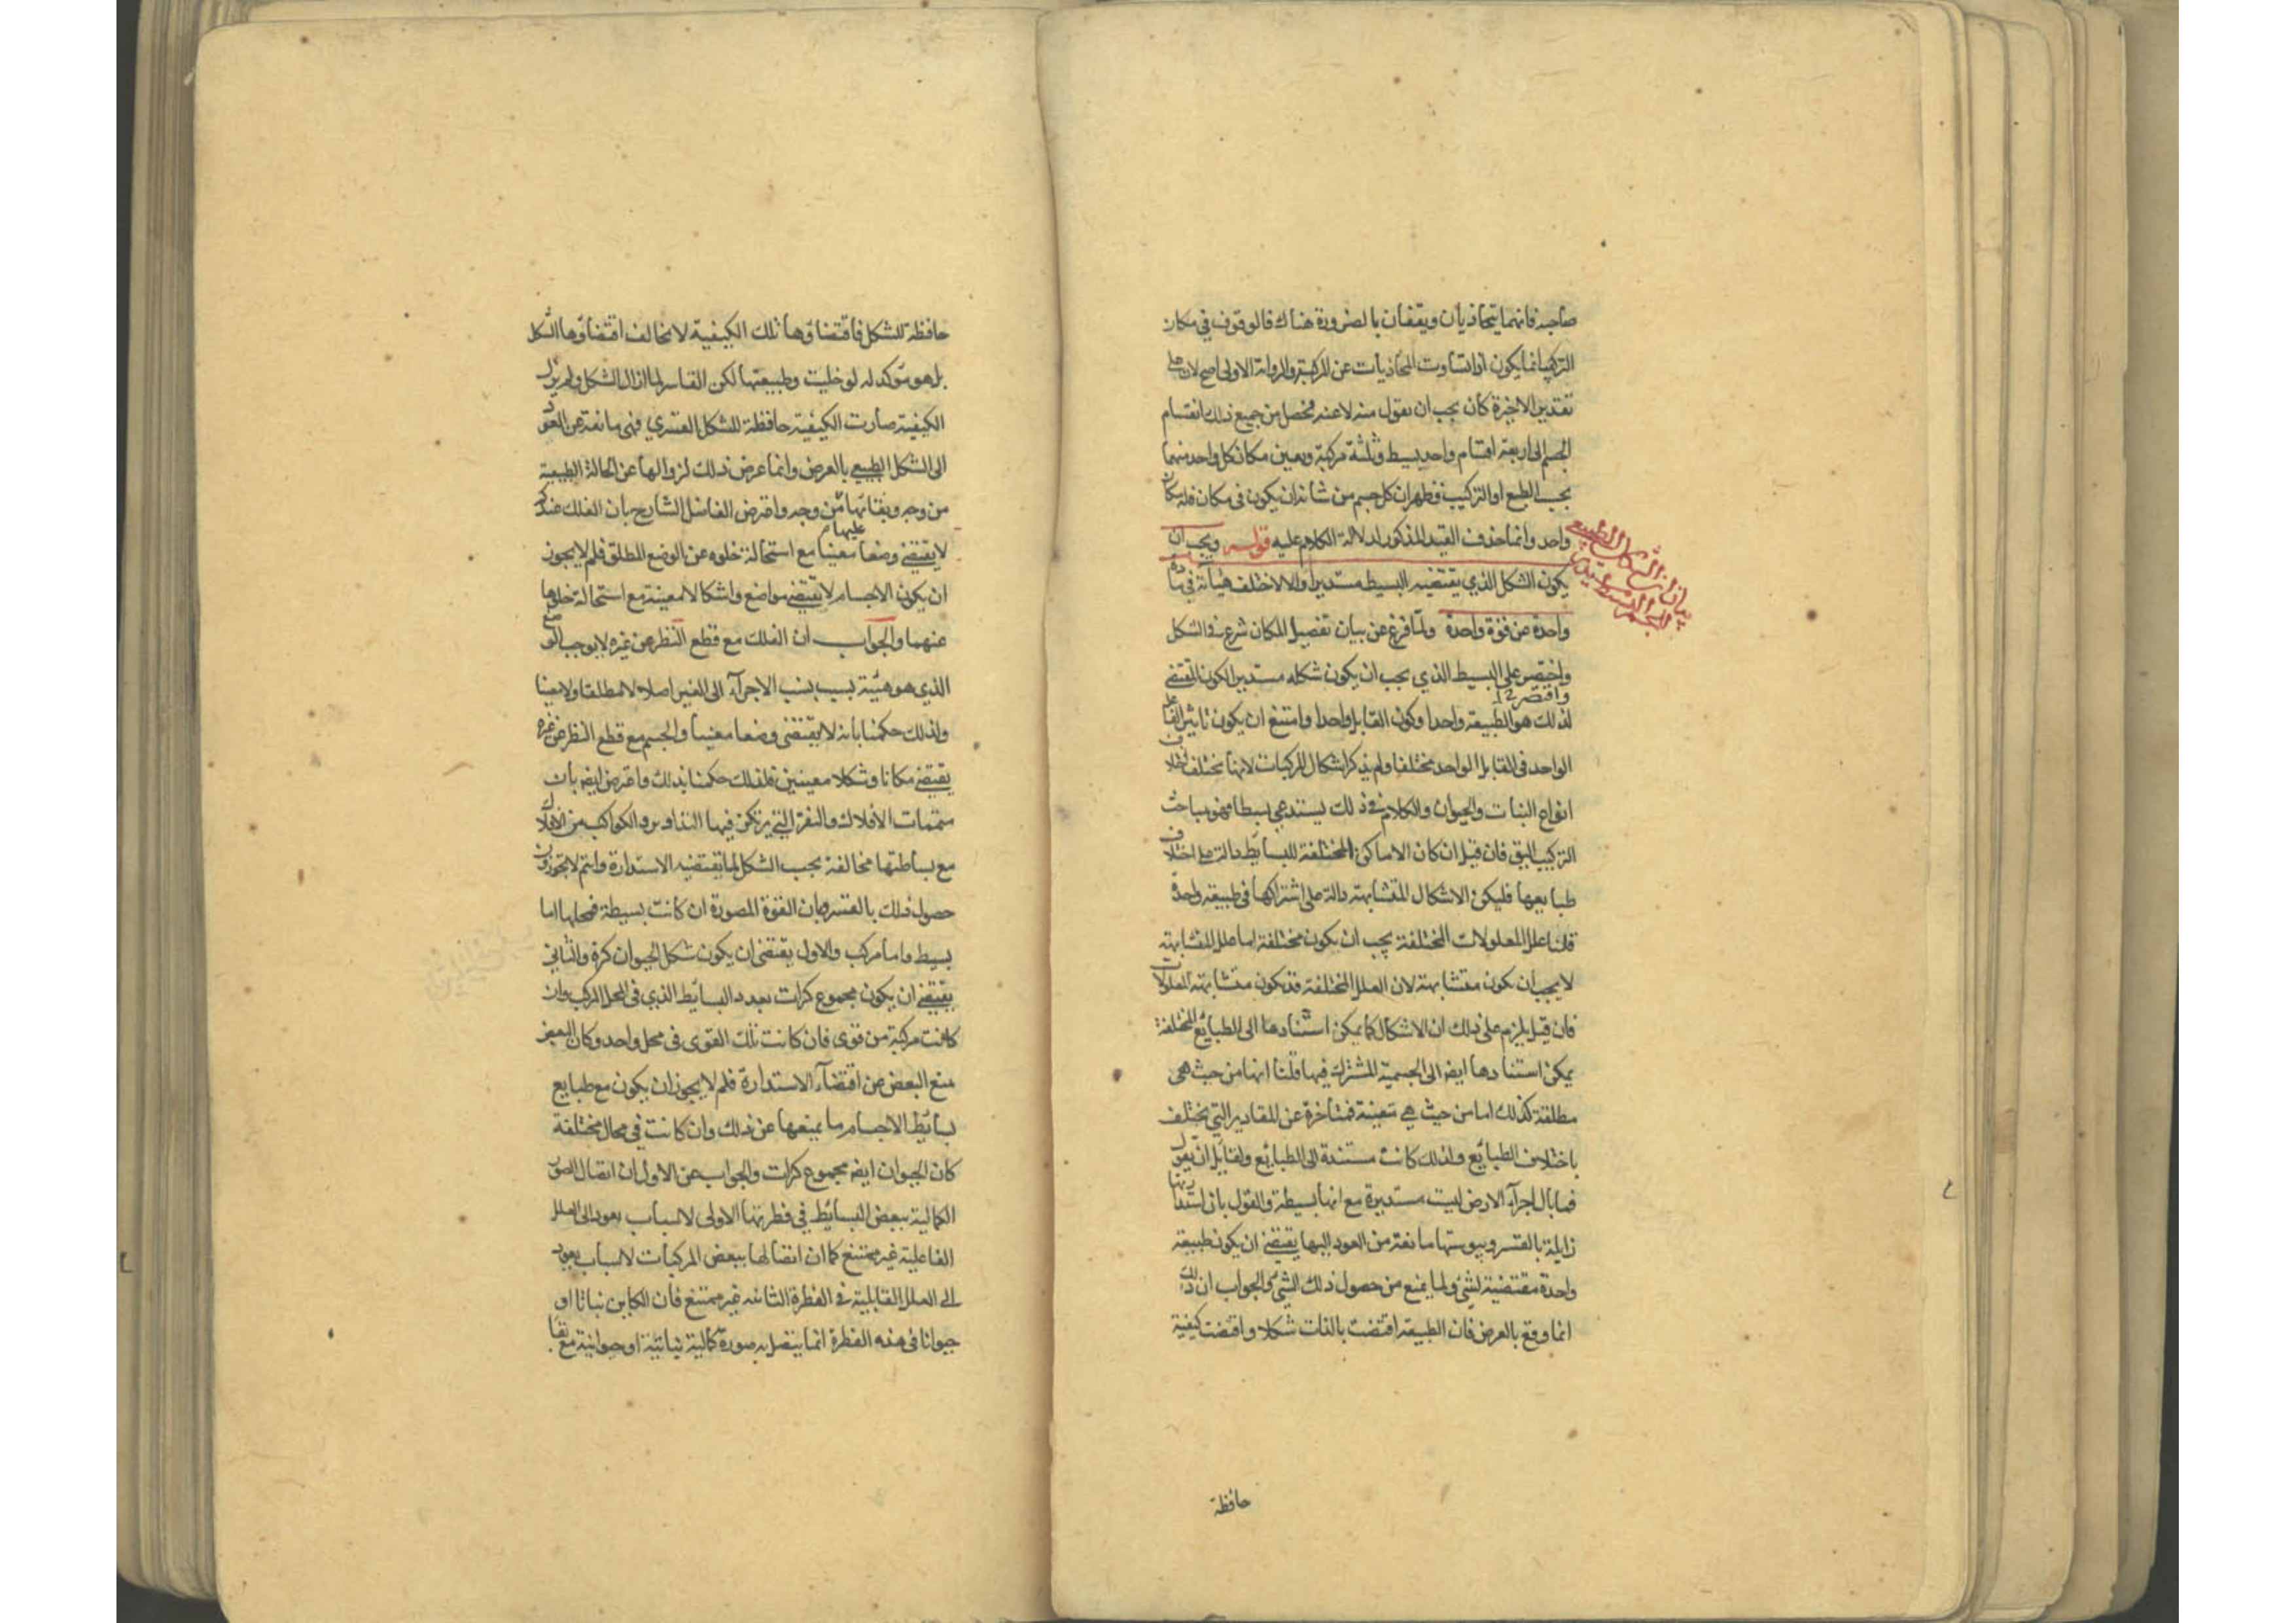 صاحبه فانهما يتحاذيان ويقفان بالضرورة هناك فالوقوف في مكان
التركيب انما يكون اذا تساوت المحاذيات عن المركبة والرواية الاولى اصح لان على
تقدير الاخيرة كان يجب ان يقول منه لا عنه فحصل من جميع ذلك انقسام
الجسم الى اربعة اقسام واحد بسيط وثلثة مركبة وتعين مكان كل واحد منهما
بحسب الطبع او التركيب فظهر ان كل جسم من شانه ان يكون في مكان فله مكان
واحد وانما حذف القيد المذكور لدلالة الكلام عليه قوله ويجب ان
يكون الشكل الذي يقتضيه البسيط مستديرا والا لاختلف هيأته في مادة
واحدة عن قوة واحدة ولما فرغ عن بيان تفصيل المكان شرع في الشكل
واختصر على البسيط الذي يجب ان يكون شكله مستديرا لكون المقتضي
واقتصر
لذلك هو الطبيعة واحدا وكون القابل واحدا وامتنع ان يكون تاثير الفاعل
الواحد في القابل الواحد مختلفا ولم يذكر اشكال المركبات لانها تختلف اختلاف
انواع النبات والحيوان والكلام في ذلك يستدعي بسطا فهو بمباحث
التركيب اليق فان قيل ان كان الاماكن المختلفة للبسايط دالة على اختلاف
طبايعها فليكن الاشكال المتشابهة دالة على اشتراكها في طبيعة واحدة
قلنا علل المعلولات المختلفة يجب ان يكون مختلفة اما علل المتشابهة
لا يجب ان تكون متشابهة لان العلل المختلفة قد تكون متشابهة المعلولات
فان قيل يلزم على ذلك ان الاشكال كما يمكن استنادها الى الطبائع المختلفة
يمكن استنادها ايضا الى الجسمية المشترك فيها قلنا انها من حيث هي
مطلقة كذلك اما من حيث هي متعينة فمتأخرة عن المقادير التي تختلف
باختلاف الطبائع ولذلك كانت مستندة الى الطبائع ولقائل ان يقول
فما بال اجزاء الارض ليست مستديرة مع انها بسيطة والقول بان استدارتها
زايلة بالقسر ويبوستها مانعة من العود اليها يقتضي ان يكون طبيعة
واحدة مقتضية لشئ ولما يمنع من حصول ذلك الشئ والجواب ان ذلك
انما وقع بالعرض فان الطبيعة اقتضت بالذات شكلا واقتضت كيفية
حافظة
بيان ان الشكل الطبيعي
حافظة للشكل فاقتضاؤها تلك الكيفية لا يخالف اقتضاؤها الشكل
بل هو مؤكد له لو خليت وطبيعتها لكن القاسر لما ازال الشكل ولم يزل
الكيفية صارت الكيفية حافظة للشكل القسري فهي مانعة عن العود
الى الشكل الطبيعي بالعرض وانما عرض ذلك لزوالها عن الحالة الطبيعية
من وجه وبقائها عليها من وجه واعترض الفاضل الشارح بان الفلك عندكم
لا يقتضي وضعا معينا مع استحالة خلوه عن الوضع المطلق فلم لا يجوز
ان يكون الاجسام لا تقتضي مواضع واشكالا معينة مع استحالة خلوها
عنهما والجواب ان الفلك مع قطع النظر عن غيره لا يوجب الوضع
الذي هو هيئة بسبب نسب الاجزاء الى الغير اصلا لا مطلقا ولا معينا
ولذلك حكمنا بانه لا يقتضي وضعا معينا والجسم مع قطع النظر عن غيره
يقتضي مكانا وشكلا معينين فلذلك حكمنا بذلك واعترض ايضا بان
متممات الافلاك والنقر التي يرتكز فيها التداوير والكواكب من الافلاك
مع بساطتها مخالفة بحسب الشكل لما يقتضيه الاستدارة وانتم لا تجوزون
حصول ذلك بالقسر وبان القوة المصورة ان كانت بسيطة فمحلها اما
بسيط واما مركب والاول يقتضي ان يكون شكل الحيوان كرة والثاني
يقتضي ان يكون مجموع كرات بعدد البسائط الذي في المحل المركب وان
كانت مركبة من قوى فان كانت تلك القوى في محل واحد وكان البعض
منع البعض عن اقتضاء الاستدارة فلم لا يجوز ان يكون مع طبايع
بسائط الاجسام ما يمنعها عن ذلك وان كانت في محال مختلفة
كان الحيوان ايضا مجموع كرات والجواب عن الاول ان اتصال الصور
الكمالية ببعض البسائط في فطرتها الاولى لاسباب يعود الى العلل
الفاعلية غير ممتنع كما ان اتصالها ببعض المركبات لاسباب يعود
الى العلل القابلية في الفطرة الثانية غير ممتنع فان الكاين نباتا او
حيوانا في هذه الفطرة انما يتصل به صورة كمالية نباتية او حيوانية مع بقا